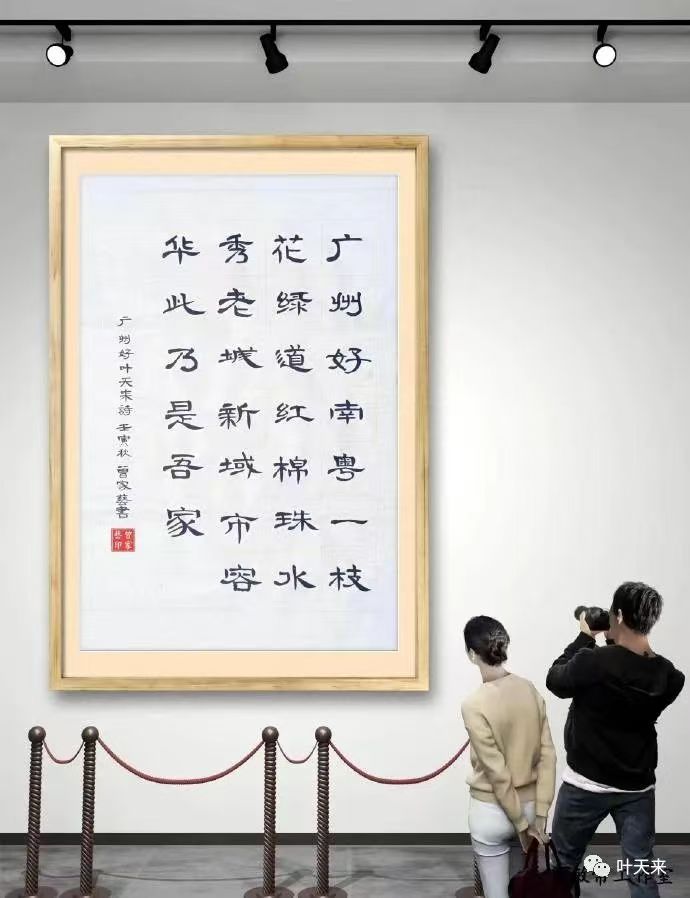 广州好南粤一枝
花绿道红棉珠水
秀老城新域市容
华此乃是吾家
广州好叶天来詩 壬寅秋 曾家藝書
叶天来
工作室